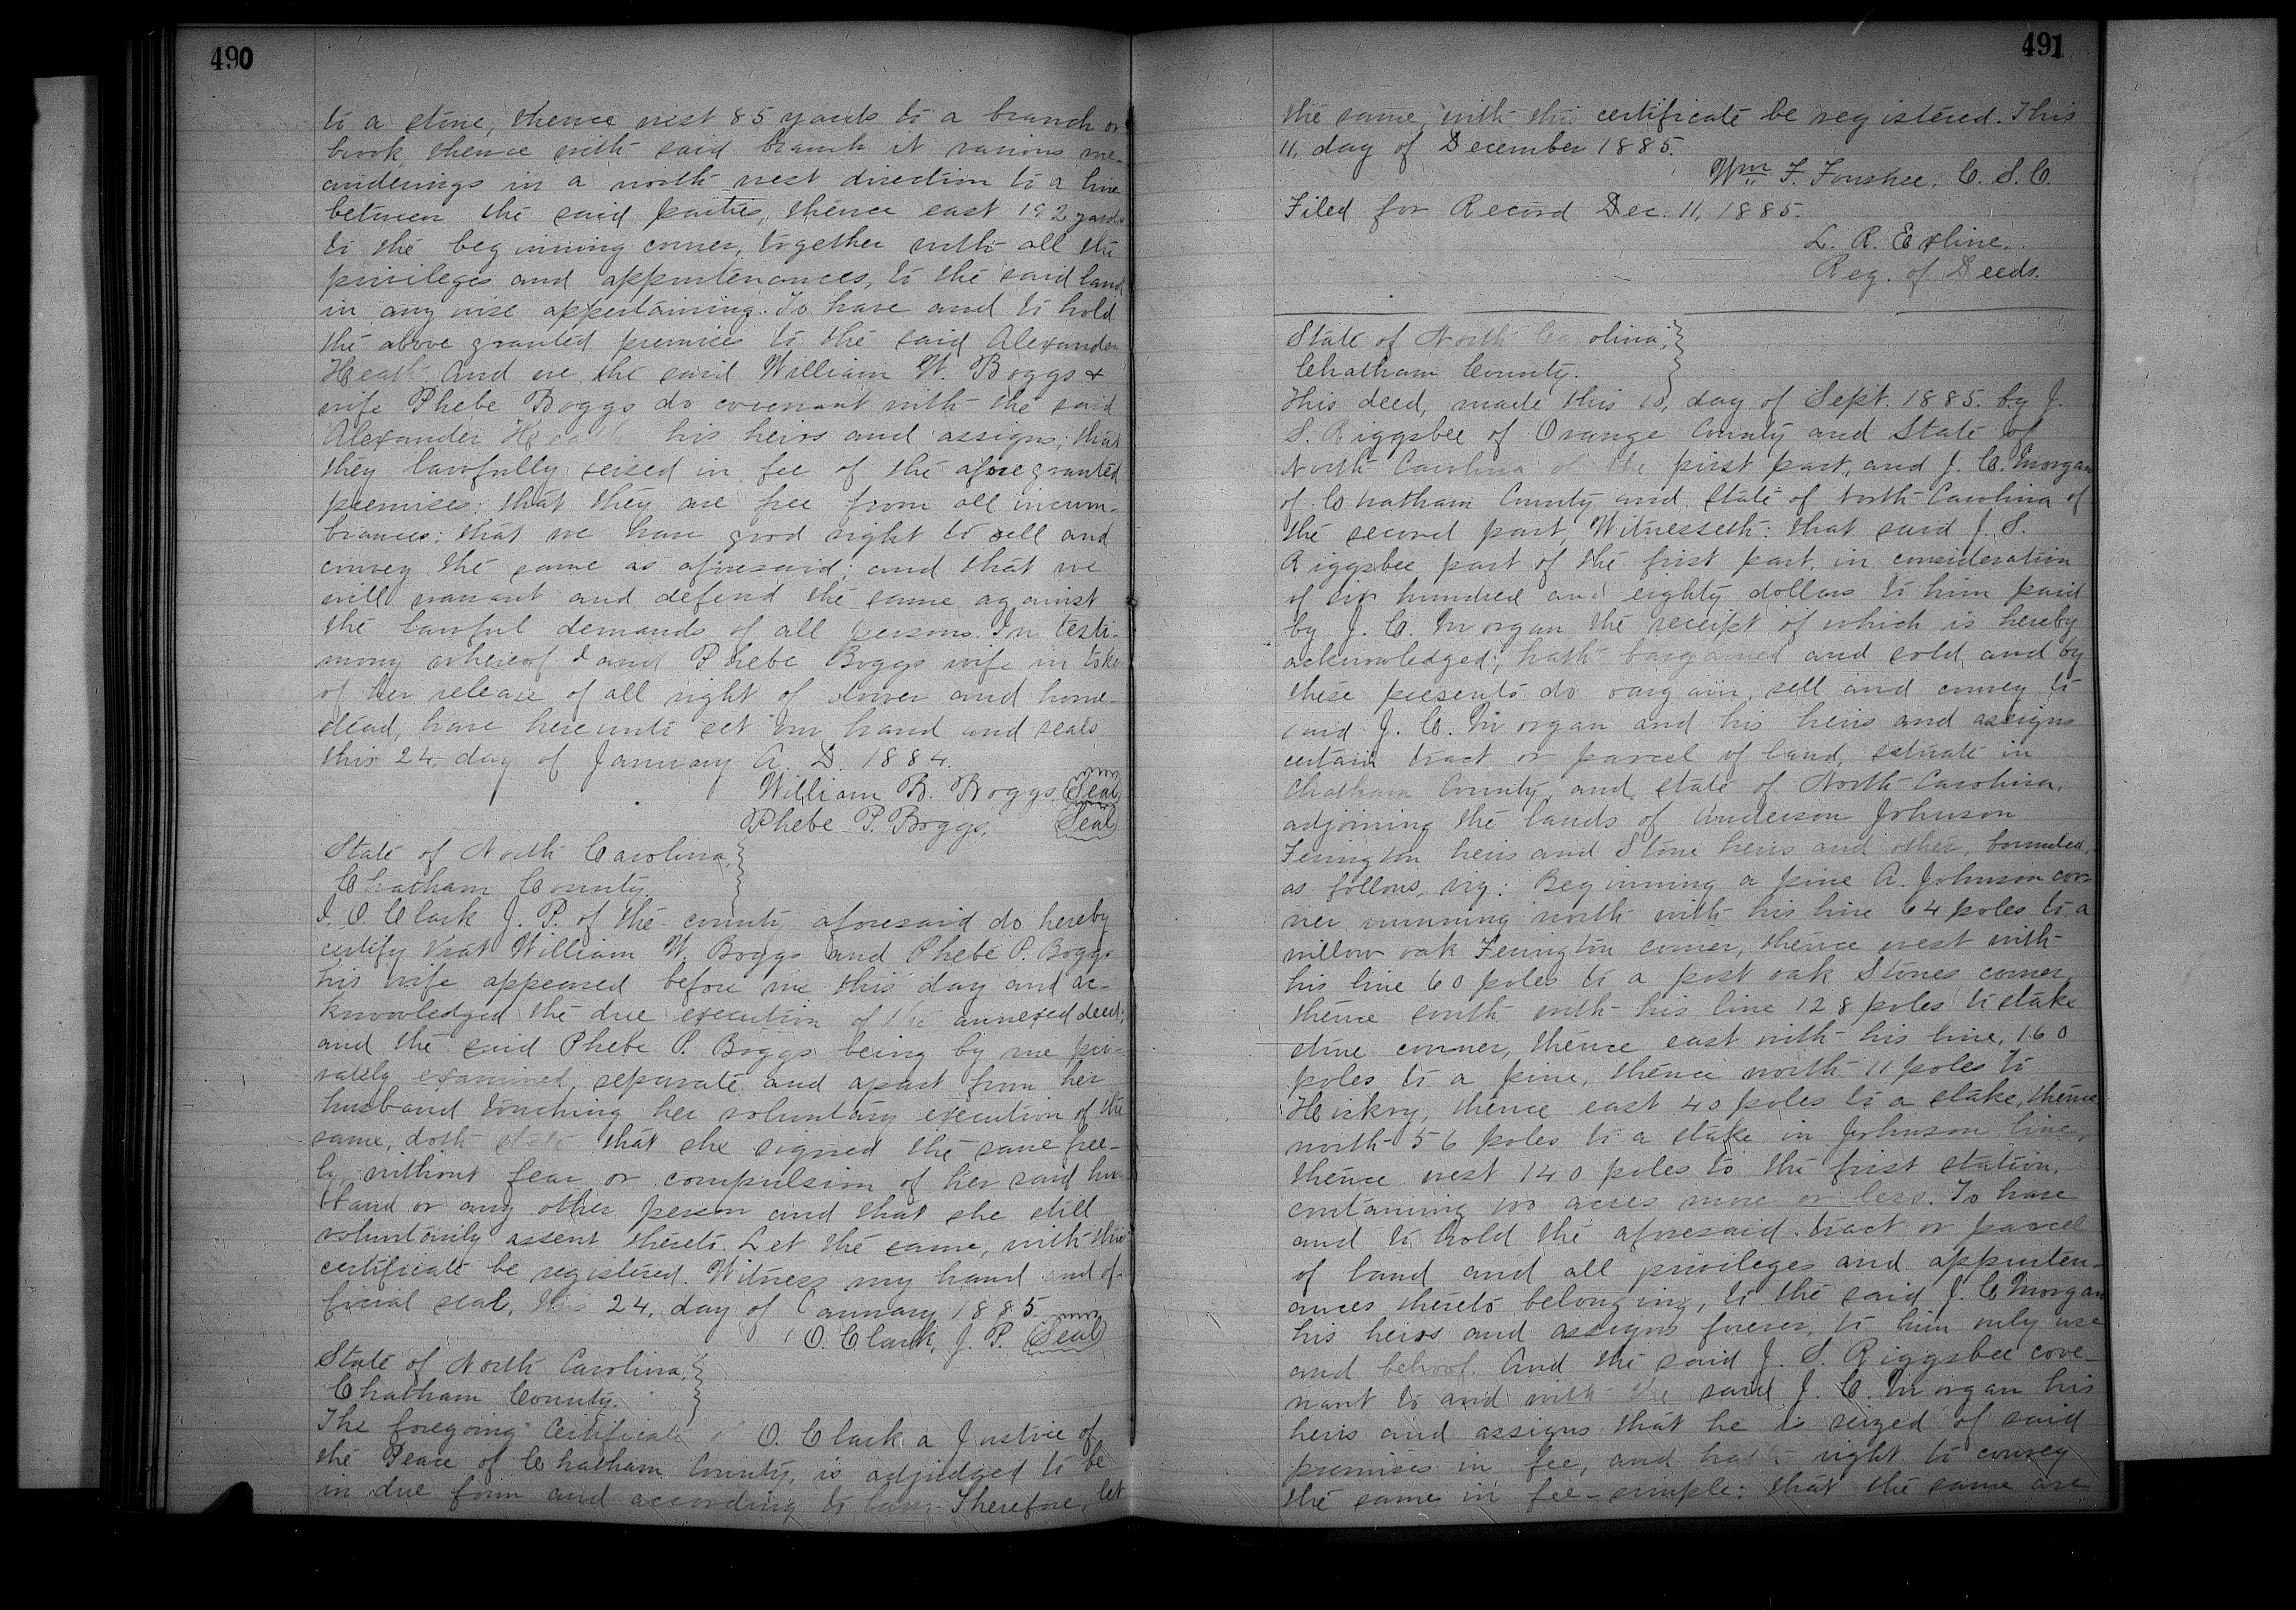 490
to a stone, thence west 85 yards to a branch or
brook, thence with said branch it various me-
anderings in a north west direction to a line
between the said parties, thence east 192 yards
to the beginning corner, together with all the
privileges and appurtenances, to the said land
in any wise appertaining. To have and to hold
the above granted premises to the said Alexander
Heath And we the said William W. Boggs &
wife Phebe Boggs do covenant with the said
Alexander Heath his heirs and assigns; that
they lawfully seised in fee of the afore granted
premises: that they are free from all incum-
brances: that we have good right to sell and
convey the same as aforesaid; and that we
will warrant and defend the same against
the lawful demands of all persons. In testi-
mony whereof I and Phebe Boggs wife in token
of her release of all right of dower and home-
stead, have hereunto set our hand and seals
this 24, day of January A. D. 1884.
William B. Boggs (Seal)
Phebe P. Boggs. (Seal)
State of North Carolina,
Chatham County.
I. O. Clark J. P. of the county aforesaid do hereby
certify that William W. Boggs and Phebe P. Boggs
his wife appeared before me this day and ac-
knowledged the due execution of the annexed deed;
and the said Phebe P. Boggs being by me pri-
vately examined, separate and apart from her
husband touching her voluntary execution of the
same, doth state that she signed the same free-
ly, without fear or compulsion of her said hus-
band or any other person and that she still
voluntarily assent thereto. Let the same, with this
certificate be registered. Witness my hand and of-
ficial seal, this 24, day of January 1885.
O. Clark, J. P. (Seal)
State of North Carolina,
Chatham County.
The foregoing Certificate of O. Clark a Justice of
the Peace of Chatham County, is adjudged to be
in due form and according to law. Therefore, let
491
the same, with this certificate be registered. This
11, day of December 1885.
Wm F. Foushee, C. S. C.
Filed for Record Dec. 11, 1885.
L. R. Exline.
Reg. of Deeds.
State of North Carolina,
Chatham County.
This deed, made this 10, day of Sept. 1885. by J.
S. Riggsbee of Orange County and State of
North Carolina of the first part, and J. C. Morgan
of Chatham County and State of North Carolina of
the second part, Witnesseth: that said J. S.
Riggsbee part of the first part, in consideration
of six hundred and eighty dollars to him paid
by J. C. Morgan the receipt of which is hereby
acknowledged; hath bargained and sold, and by
these presents do bargain, sell and convey to
said J. C. Morgan and his heirs and assigns
certain tract or parcel of land, situate in
Chatham County, and state of North Carolina,
adjoining the lands of Anderson Johnson
Ferington heirs and Stone heirs and other, bounded,
as follows, viz: Beginning a pine A. Johnson cor-
ner running north with his line 64 poles to a
willow oak Ferington corner, thence west with
his line 60 poles to a post oak Stones corner,
thence south with his line 128 poles to stake
stone corner, thence east with his line, 160
poles to a pine, thence north 11 poles to
Hickry, thence east 40 poles to a stake, thence
north 56 poles to a stake in Johnson line,
thence west 140 poles to the first station,
containing 100 acres more or less. To have
and to hold the aforesaid tract or parcel
of land and all privileges and appurten-
ances thereto belonging, to the said J. C. Morgan
his heirs and assigns forever, to him only use
and behoof. And the said J. S. Riggsbee cove-
nant to and with the said J. C. Morgan his
heirs and assigns that he is seized of said
premises in fee, and hath right to convey
the same in fee-simple: that the same are